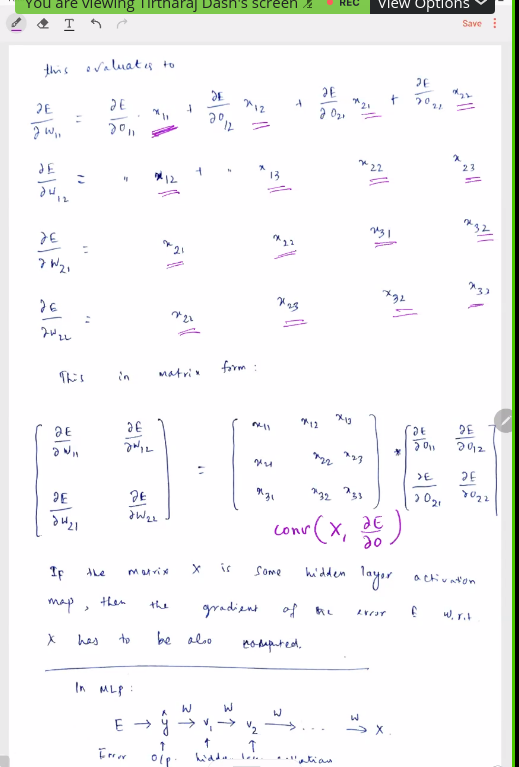 You are viewing Tirtharaj Dash's screen REC View Options
T Save
this evaluates to
∂E/∂W₁₁ = ∂E/∂O₁₁ · x₁₁ + ∂E/∂O₁₂ x₁₂ + ∂E/∂O₂₁ x₂₁ + ∂E/∂O₂₂ x₂₂
∂E/∂W₁₂ = " x₁₂ + " x₁₃ x₂₂ x₂₃
∂E/∂W₂₁ = x₂₁ x₂₂ x₃₁ x₃₂
∂E/∂W₂₂ = x₂₂ x₂₃ x₃₂ x₃₃
This in matrix form :
[ ∂E/∂W₁₁ ∂E/∂W₁₂ ; ∂E/∂W₂₁ ∂E/∂W₂₂ ] = [ x₁₁ x₁₂ x₁₃ ; x₂₁ x₂₂ x₂₃ ; x₃₁ x₃₂ x₃₃ ] * [ ∂E/∂O₁₁ ∂E/∂O₁₂ ; ∂E/∂O₂₁ ∂E/∂O₂₂ ]
conv(X, ∂E/∂O)
If the matrix X is some hidden layer activation
map, then the gradient of the error E w.r.t.
X has to be also computed.
In MLP :
E → ŷ →W v₁ →W v₂ →W ... →W X.
Error O/p. hidden